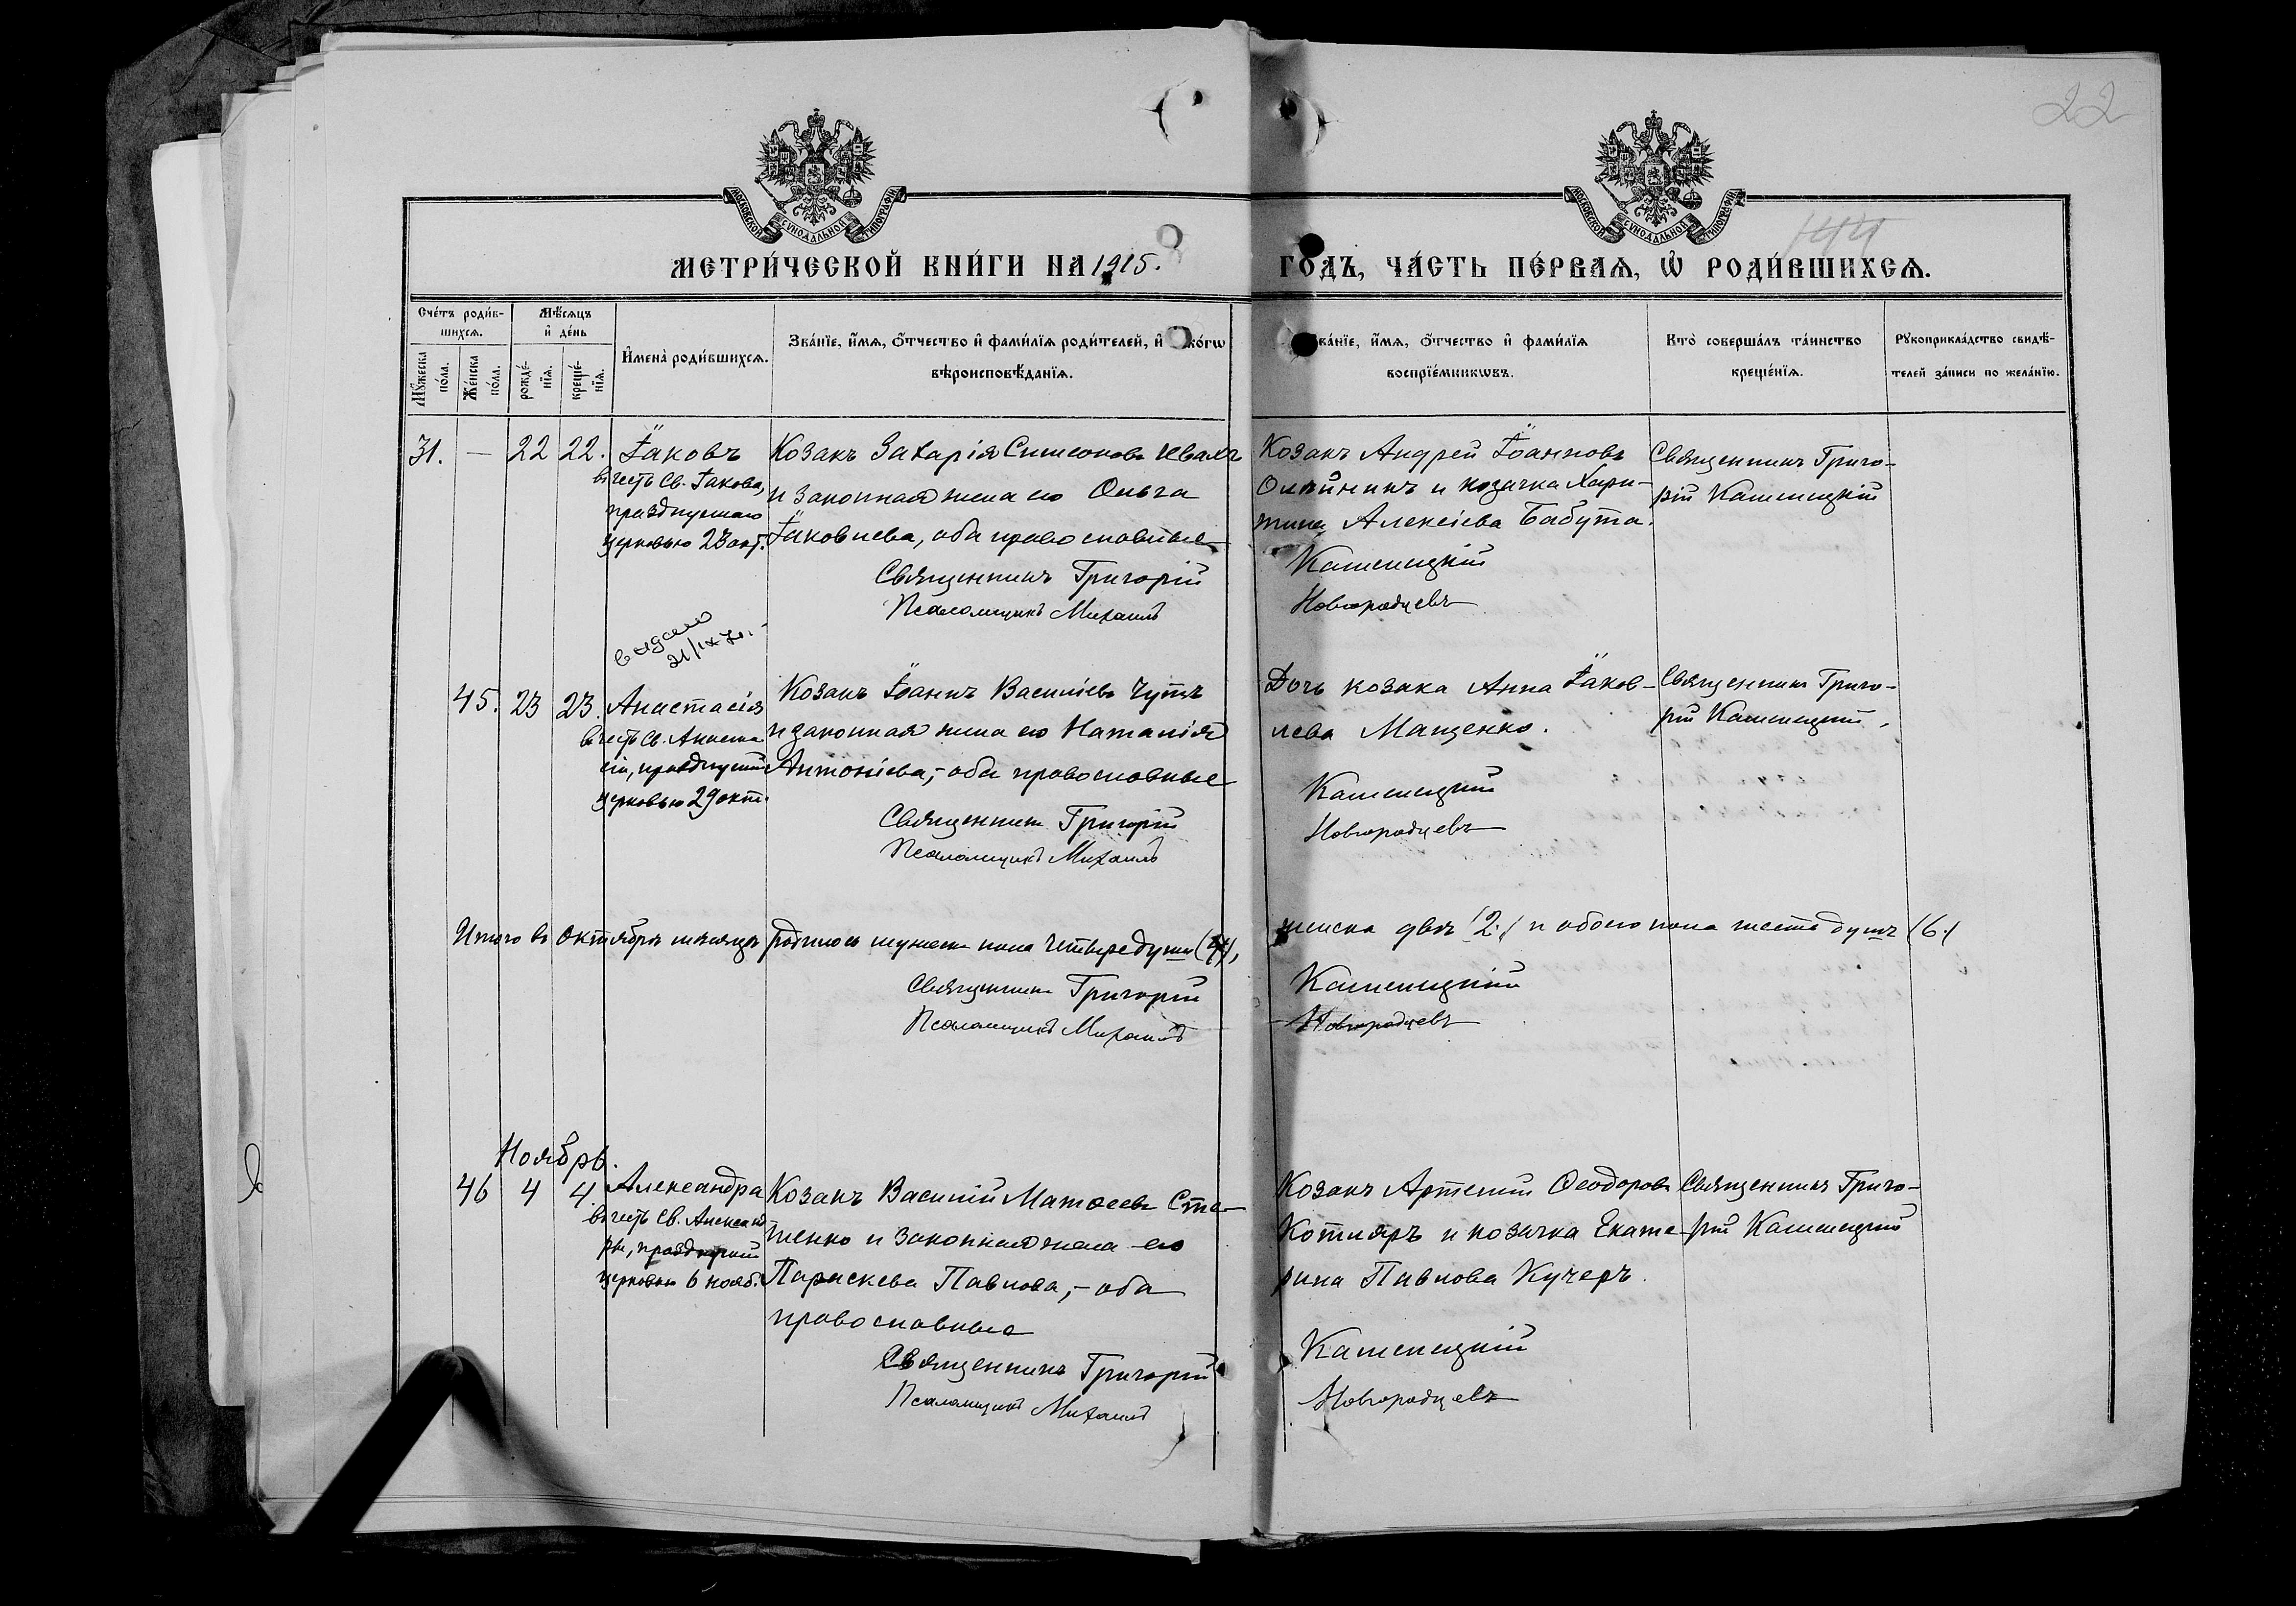 22
МОСКОВСКОЙ СѴНОДАЛЬНОЙ ТИПОГРАФІИ
МОСКОВСКОЙ СѴНОДАЛЬНОЙ ТИПОГРАФІИ
144
МЕТРИ́ЧЕСКОЙ КНИ́ГИ НА 1915. ГОДЪ, ЧА́СТЬ ПЕ́РВАЯ, Ѽ РОДИ́ВШИХСЯ.
Сче́тъ роди́в-
шихся.
Му́жеска по́ла.
Же́нска по́ла.
Мѣ́сяцъ
и҆ де́нь
рожде́-
нїя.
креще́-
нїя.
И҆мена̀ роди́вшихся.
Зва́нїе, и҆́мя, о҆́тчество и҆ фами́лїя роди́телей, и҆ ко́гѡ
вѣроисповѣ́данїя.
ва́нїе, и҆́мя, о҆́тчество и҆ фами́лїя
воспрїе́мникѡвъ.
Кто̀ соверша́лъ та́инство
креще́нїя.
Рꙋкоприкла́дство свидѣ́-
телей за́писи по жела́нїю.
31. — 22 22. Іаковъ
въ честь Св. Іакова,
празднуемаго
церковью 23 окт.
Козакъ Захарія Симеоновъ
и законная жена его Ольга
Іаковлева, оба православные
Священникъ Григорій
Псаломщикъ Михаилъ
Козакъ Андрей Іоанновъ
Олейникъ и козачка Хари-
тина Алексіева Бабута.
Каменицкій
Новгородцевъ
Священникъ Григо-
рій Каменицкій
21/IX
45. 23 23. Анастасія
въ честь Св. Анаста-
сіи, празднуемой
церковью 29 окт.
Козакъ Іоаннъ Василіевъ Чупъ
и законная жена его Наталія
Антоніева, – оба православные
Священникъ Григорій
Псаломщикъ Михаилъ
Дочь козака Анна Іаков-
лева Мащенко.
Каменицкій
Новгородцевъ
Священникъ Григо-
рій Каменицкій
Итого въ Октябрѣ мѣсяцѣ родилось мужеска пола четыре души (4), женска двѣ (2) и обоего пола шесть душъ (6)
Священникъ Григорій Каменицкій
Псаломщикъ Михаилъ Новгородцевъ
Ноябрь.
46 4 4 Александра
въ честь Св. Александ-
ры, празднуемой
церковью 6 нояб.
Козакъ Василій Матѳеевъ Сте-
ценко и законная жена его
Параскева Павлова, – оба
православные
Священникъ Григорій
Псаломщикъ Михаилъ
Козакъ Артемій Ѳеодоровъ
Котляръ и козачка Екате-
рина Павлова Кучеръ.
Каменицкій
Новгородцевъ
Священникъ Григо-
рій Каменицкій